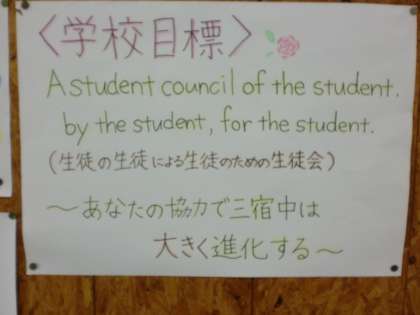 〈学校目標〉
A student council of the student,
by the student, for the student.
(生徒の生徒による生徒のための生徒会)
～あなたの協力で三宿中は
大きく進化する～